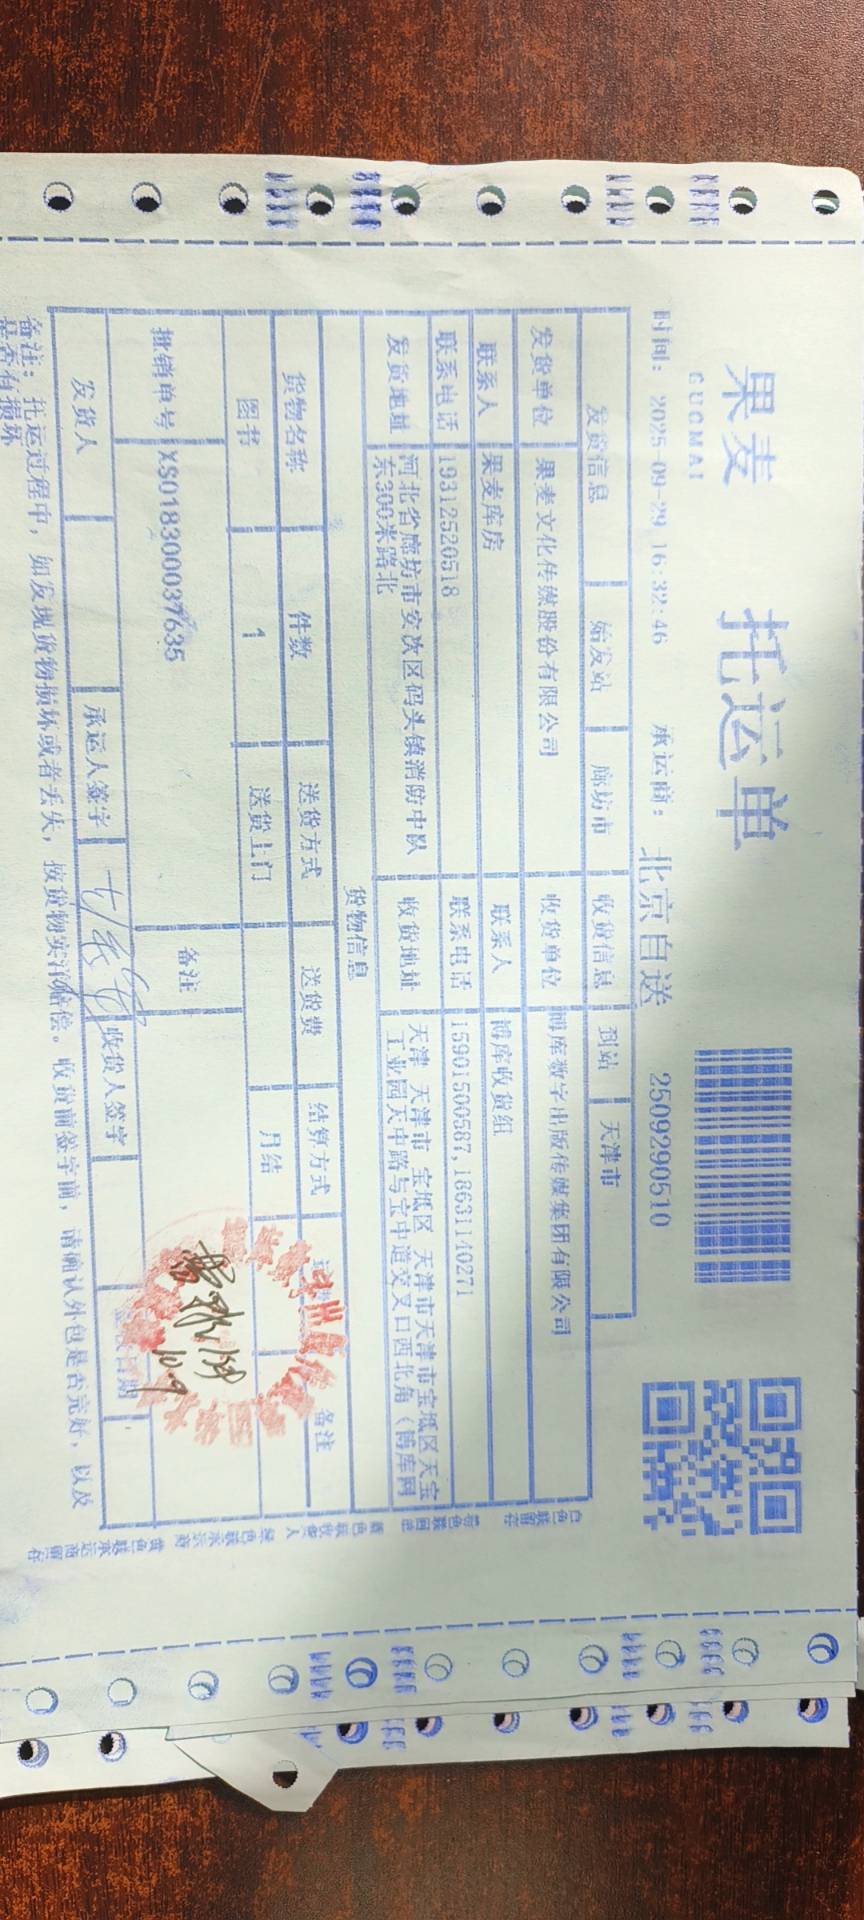 果麦
GUOMAI
托运单
时间: 2025-09-29 16:32:46 承运商: 北京自送 2509290510
发货信息 始发站 廊坊市 收货信息 到站 天津市
发货单位 果麦文化传媒股份有限公司 收货单位 博库数字出版传媒集团有限公司
联系人 果麦库房 联系人 博库收货组
联系电话 19312520518 联系电话 15901500587,18631140271
发货地址 河北省廊坊市安次区码头镇消防中队 收货地址 天津 天津市 宝坻区 天津市天津市宝坻区天宝
东300米路北 工业园天中路与宝中道交叉口西北角(博库网
货物信息
货物名称 件数 送货方式 送货费 结算方式 备注
图书 1 送货上门 月结
批销单号 XS018300037635 备注
发货人 承运人签字 收货人签字 签收日期
10.9
备注: 托运过程中, 如发现货物损坏或者丢失, 按货物实洋赔偿。收货前签字前, 请确认外包是否完好, 以及
是否有损坏
白色联留存